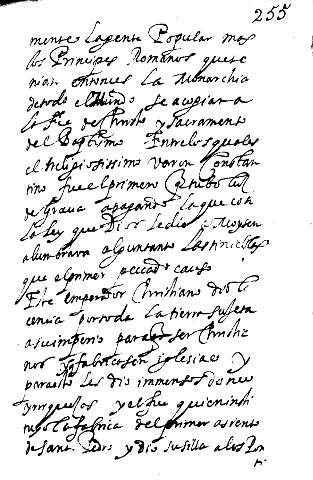 255
mente la gente Popular mas
los Principes Romanos que te
nian entonces la Monarchia
de todo el Mundo se acogian a
la fee de Christo y sacramento
del Baptismo Entre los quales
el Religiosissimo varon Constan
tino fue el primero
de Gracia apagando la que con
la Ley que Dios le dio a Moysen
alumbrava algun tanto las tinieblas
que el primer peccado causo
Este emperador Christiano dio li
cencia por toda la tierra sujeta
a su imperio para ser Christia
nos y fabricasen iglesias y
para esto les dio immensos dones
y riquezas y el fue quien insti
tuyo la fabrica del primer asiento
de sant Pedro y dio su silla a los Pon
ti